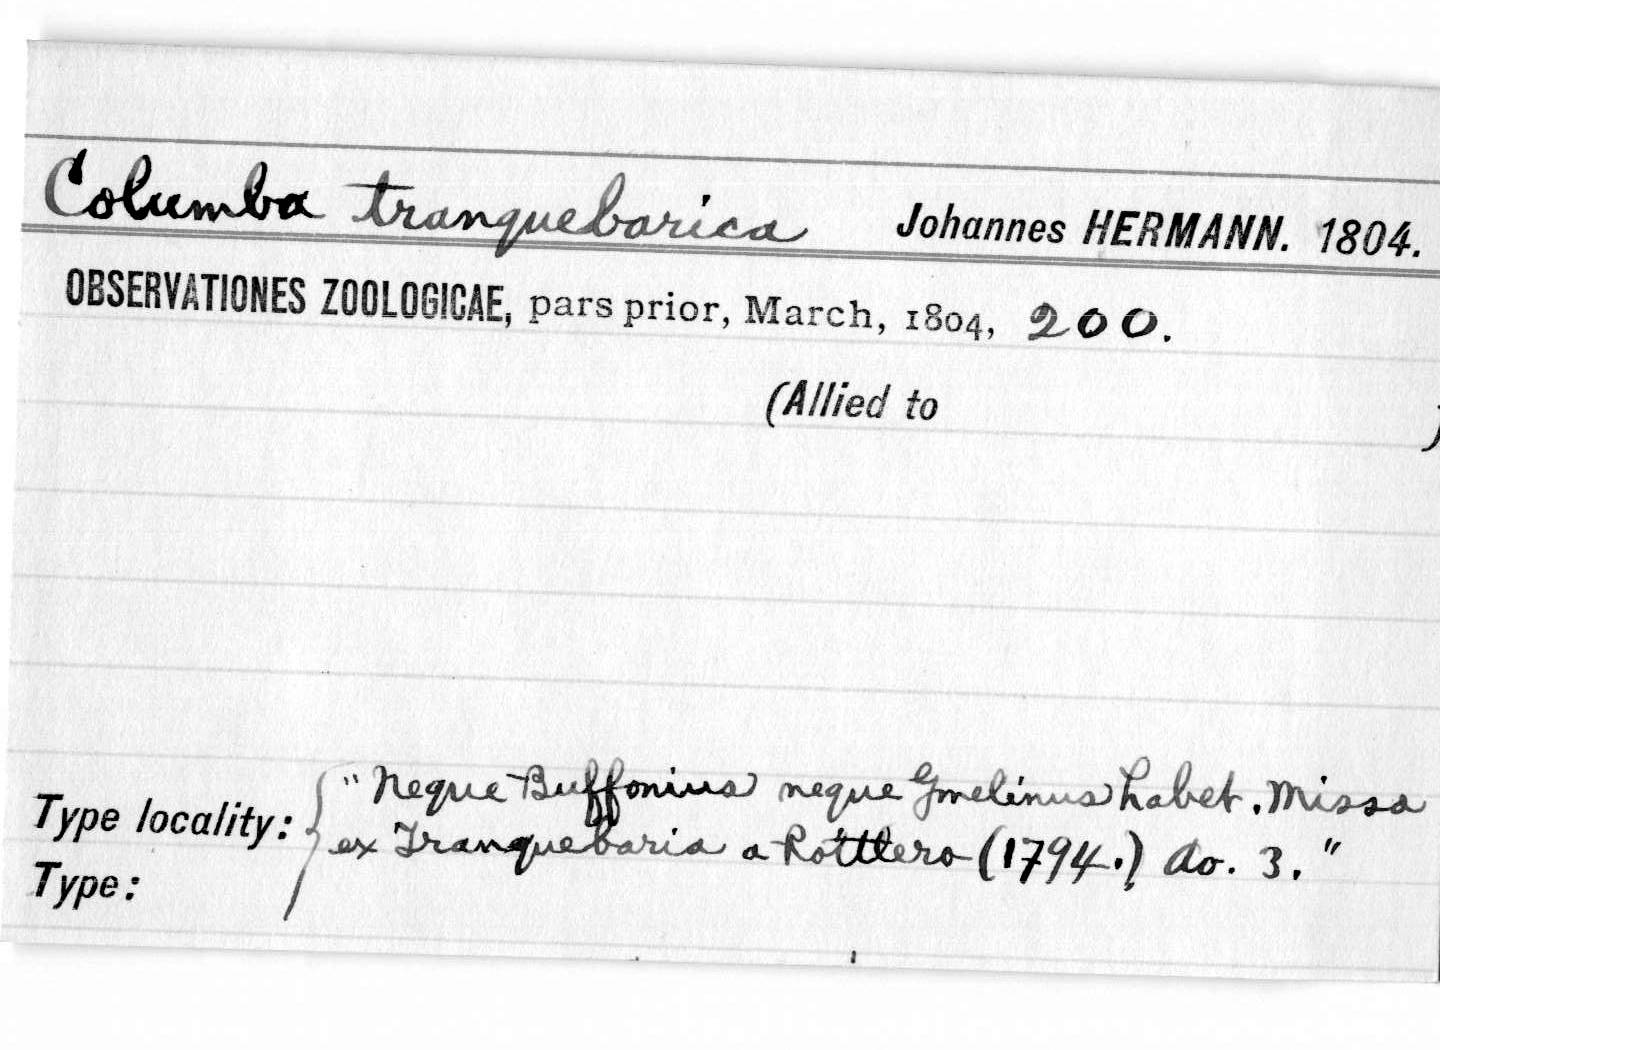 Columba tranquebarica Johannes HERMANN. 1804.
OBSERVATIONES ZOOLOGICAE, pars prior, March, 1804, 200.
(Allied to )
Type locality: { " Neque Buffonius neque Gmelinus habet. Missa
ex Tranquebaria a Rottlero (1794.) do. 3. "
Type: